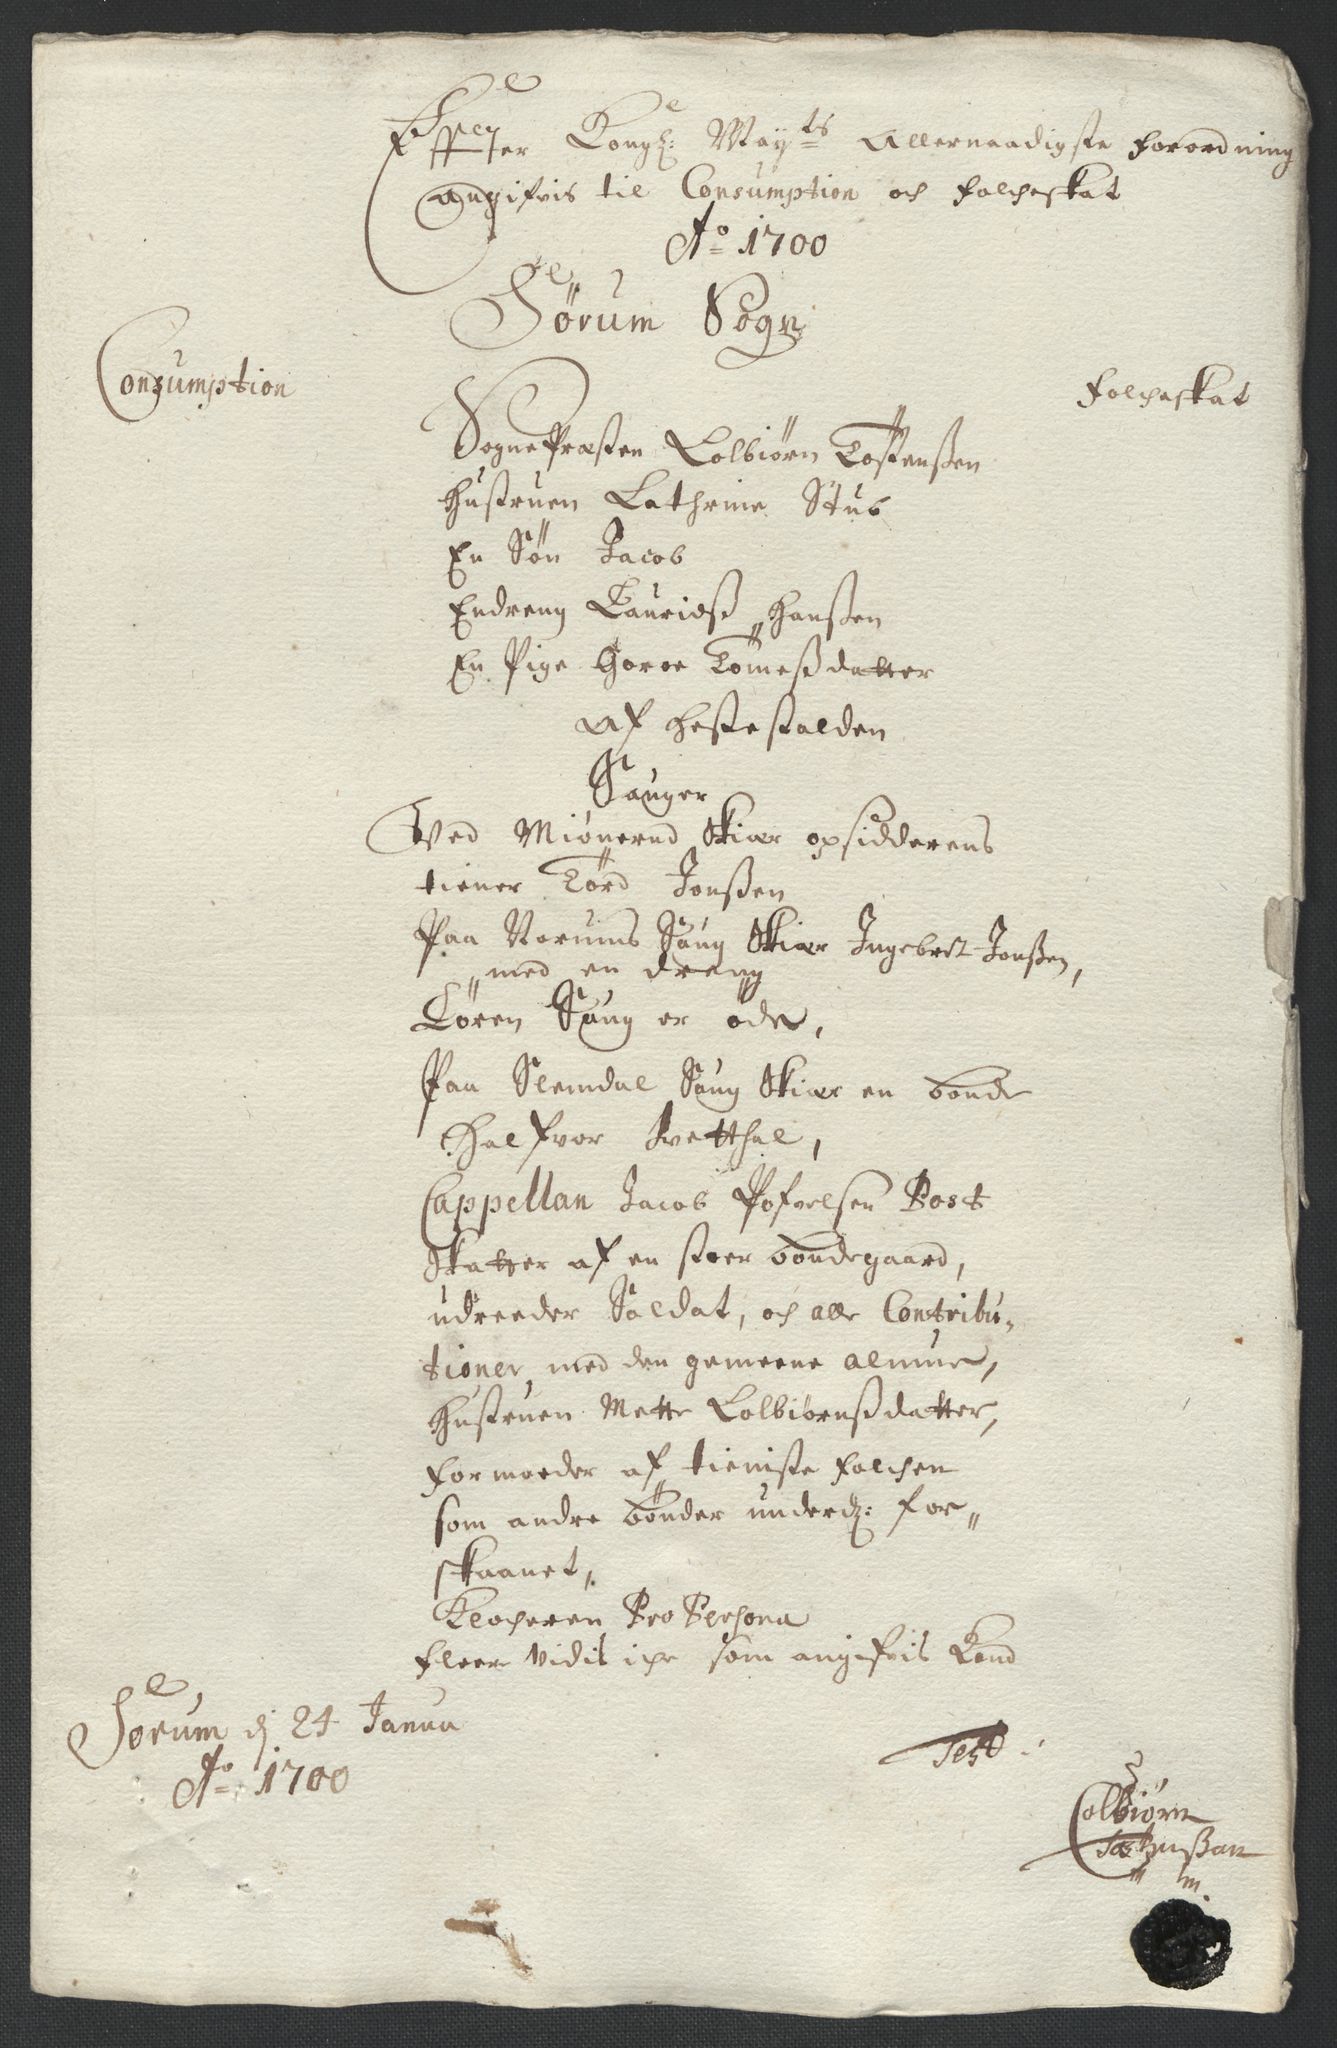 Effter Kongl: May:ts Allernaadigste forordning
angifvis til Consumption och folcheskat
Ao 1700
Sörum Sogn
Consumption
folcheskat
Sognepræsten Colbiörn Tostenßen
hustruen Cathrine Stub
En Sön Jacob
En dreng Lauridß Hanßen
En Pige Goroe Tomeßdatter
af hestestalden
Sauger
Ved Miönerud Skiær opsidderens
tiener Tord Jonßen
Paa Rorums Saug Skiær Ingebret Jonßen,
med en dreng
Lören Saug er öde,
Paa Slemdal Saug Skiær en bonde
Halfvor Tvetthal,
Cappellan Jacob Pofvelsen Rost
Skatter af en stoer bondegaard,
udreeder Soldat, och alle Contribu-
tioner med den gemeene almue,
hustruen Mette Colbiörnßdatter,
formoeder af tieniste folchen
som andre bönder underd: for-
skaanet,
Klocheren Pro Persona
fleere vidis iche som angifvis kand
Sörum dj 24 Janua
Ao 1700
Test:
Colbiörn
Tostenßøn
m.